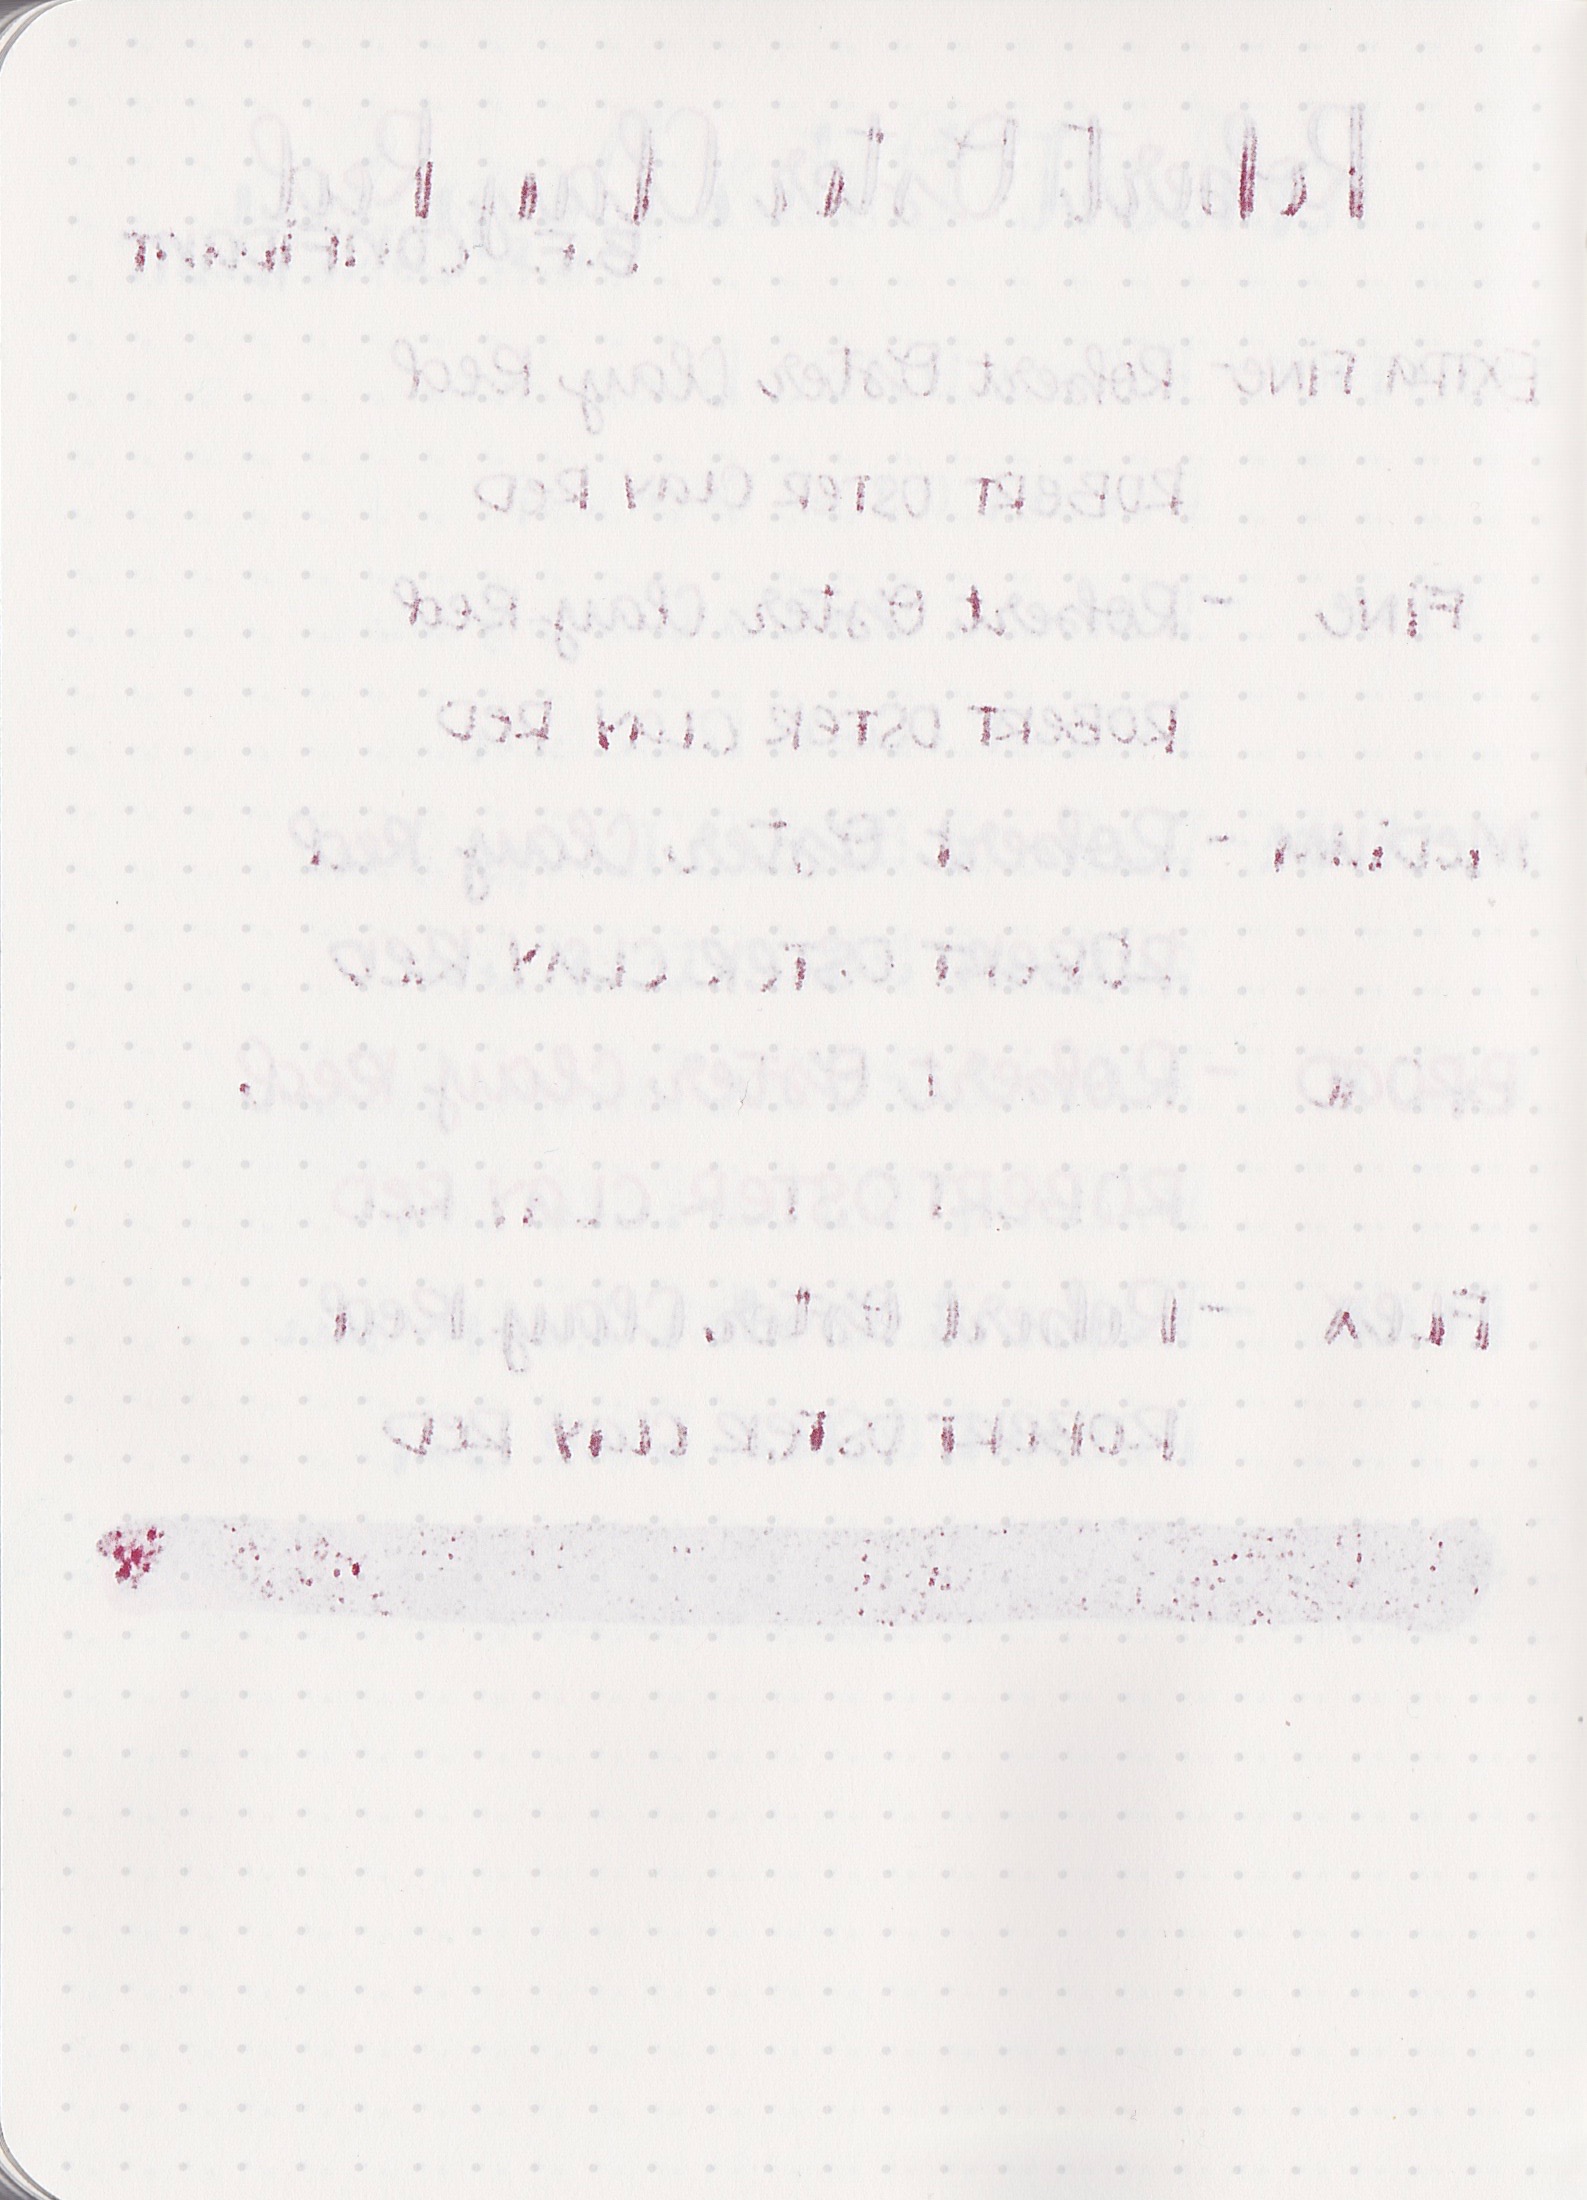 Robert Oster Clay Red
EXTRA FINE - Robert Oster Clay Red
ROBERT OSTER CLAY RED
FINE - Robert Oster Clay Red
ROBERT OSTER CLAY RED
MEDIUM - Robert Oster Clay Red
ROBERT OSTER CLAY RED
BROAD - Robert Oster Clay Red
ROBERT OSTER CLAY RED
FLEX - Robert Oster Clay Red
ROBERT OSTER CLAY RED